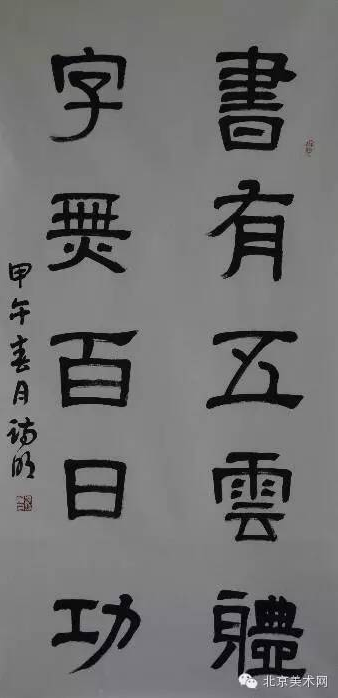 書有五雲體
字無百日功
甲午春月
北京美术网